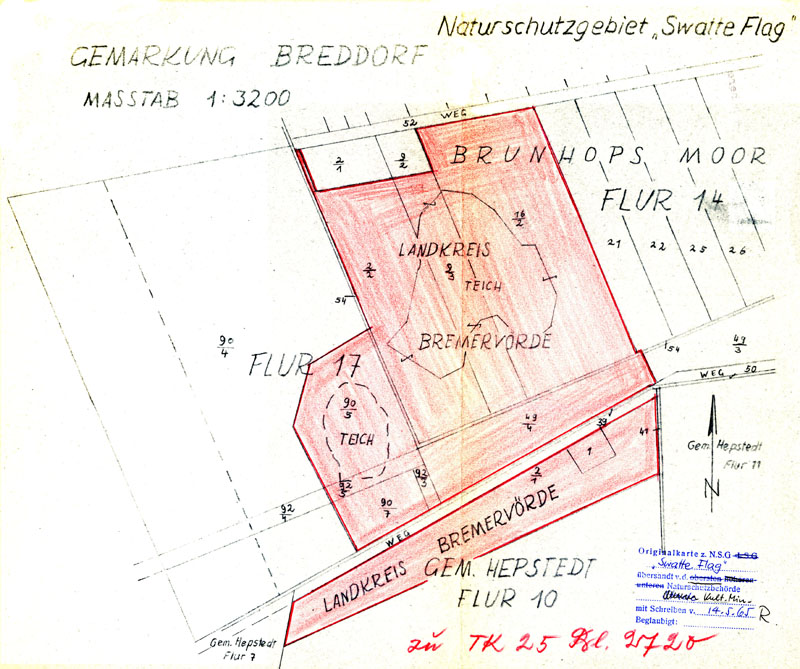 Naturschutzgebiet „Swatte Flag"
GEMARKUNG BREDDORF
MASSTAB 1:3200
WEG
52
2/1
9/2
BRUNHOPS MOOR
FLUR 14
16/2
21
22
25
26
LANDKREIS
2/2
9/3
TEICH
54
BREMERVÖRDE
90/4
54
49/3
FLUR 17
WEG
50
90/5
TEICH
49/4
39
41
1
Gem. Hepstedt
Flur 11
92/3
92/5
2/1
90/7
92/4
N
WEG
LANDKREIS BREMERVÖRDE
GEM. HEPSTEDT
FLUR 10
Gem. Hepstedt
Flur 7
Originalkarte z. N.S.G. L.S.G
„Swatte Flag"
übersandt v.d. obersten höheren
unteren Naturschutzbehörde
Kult. Min.
mit Schreiben v. 14.5.65 R
Beglaubigt:
zu TK 25 Bl. 2720